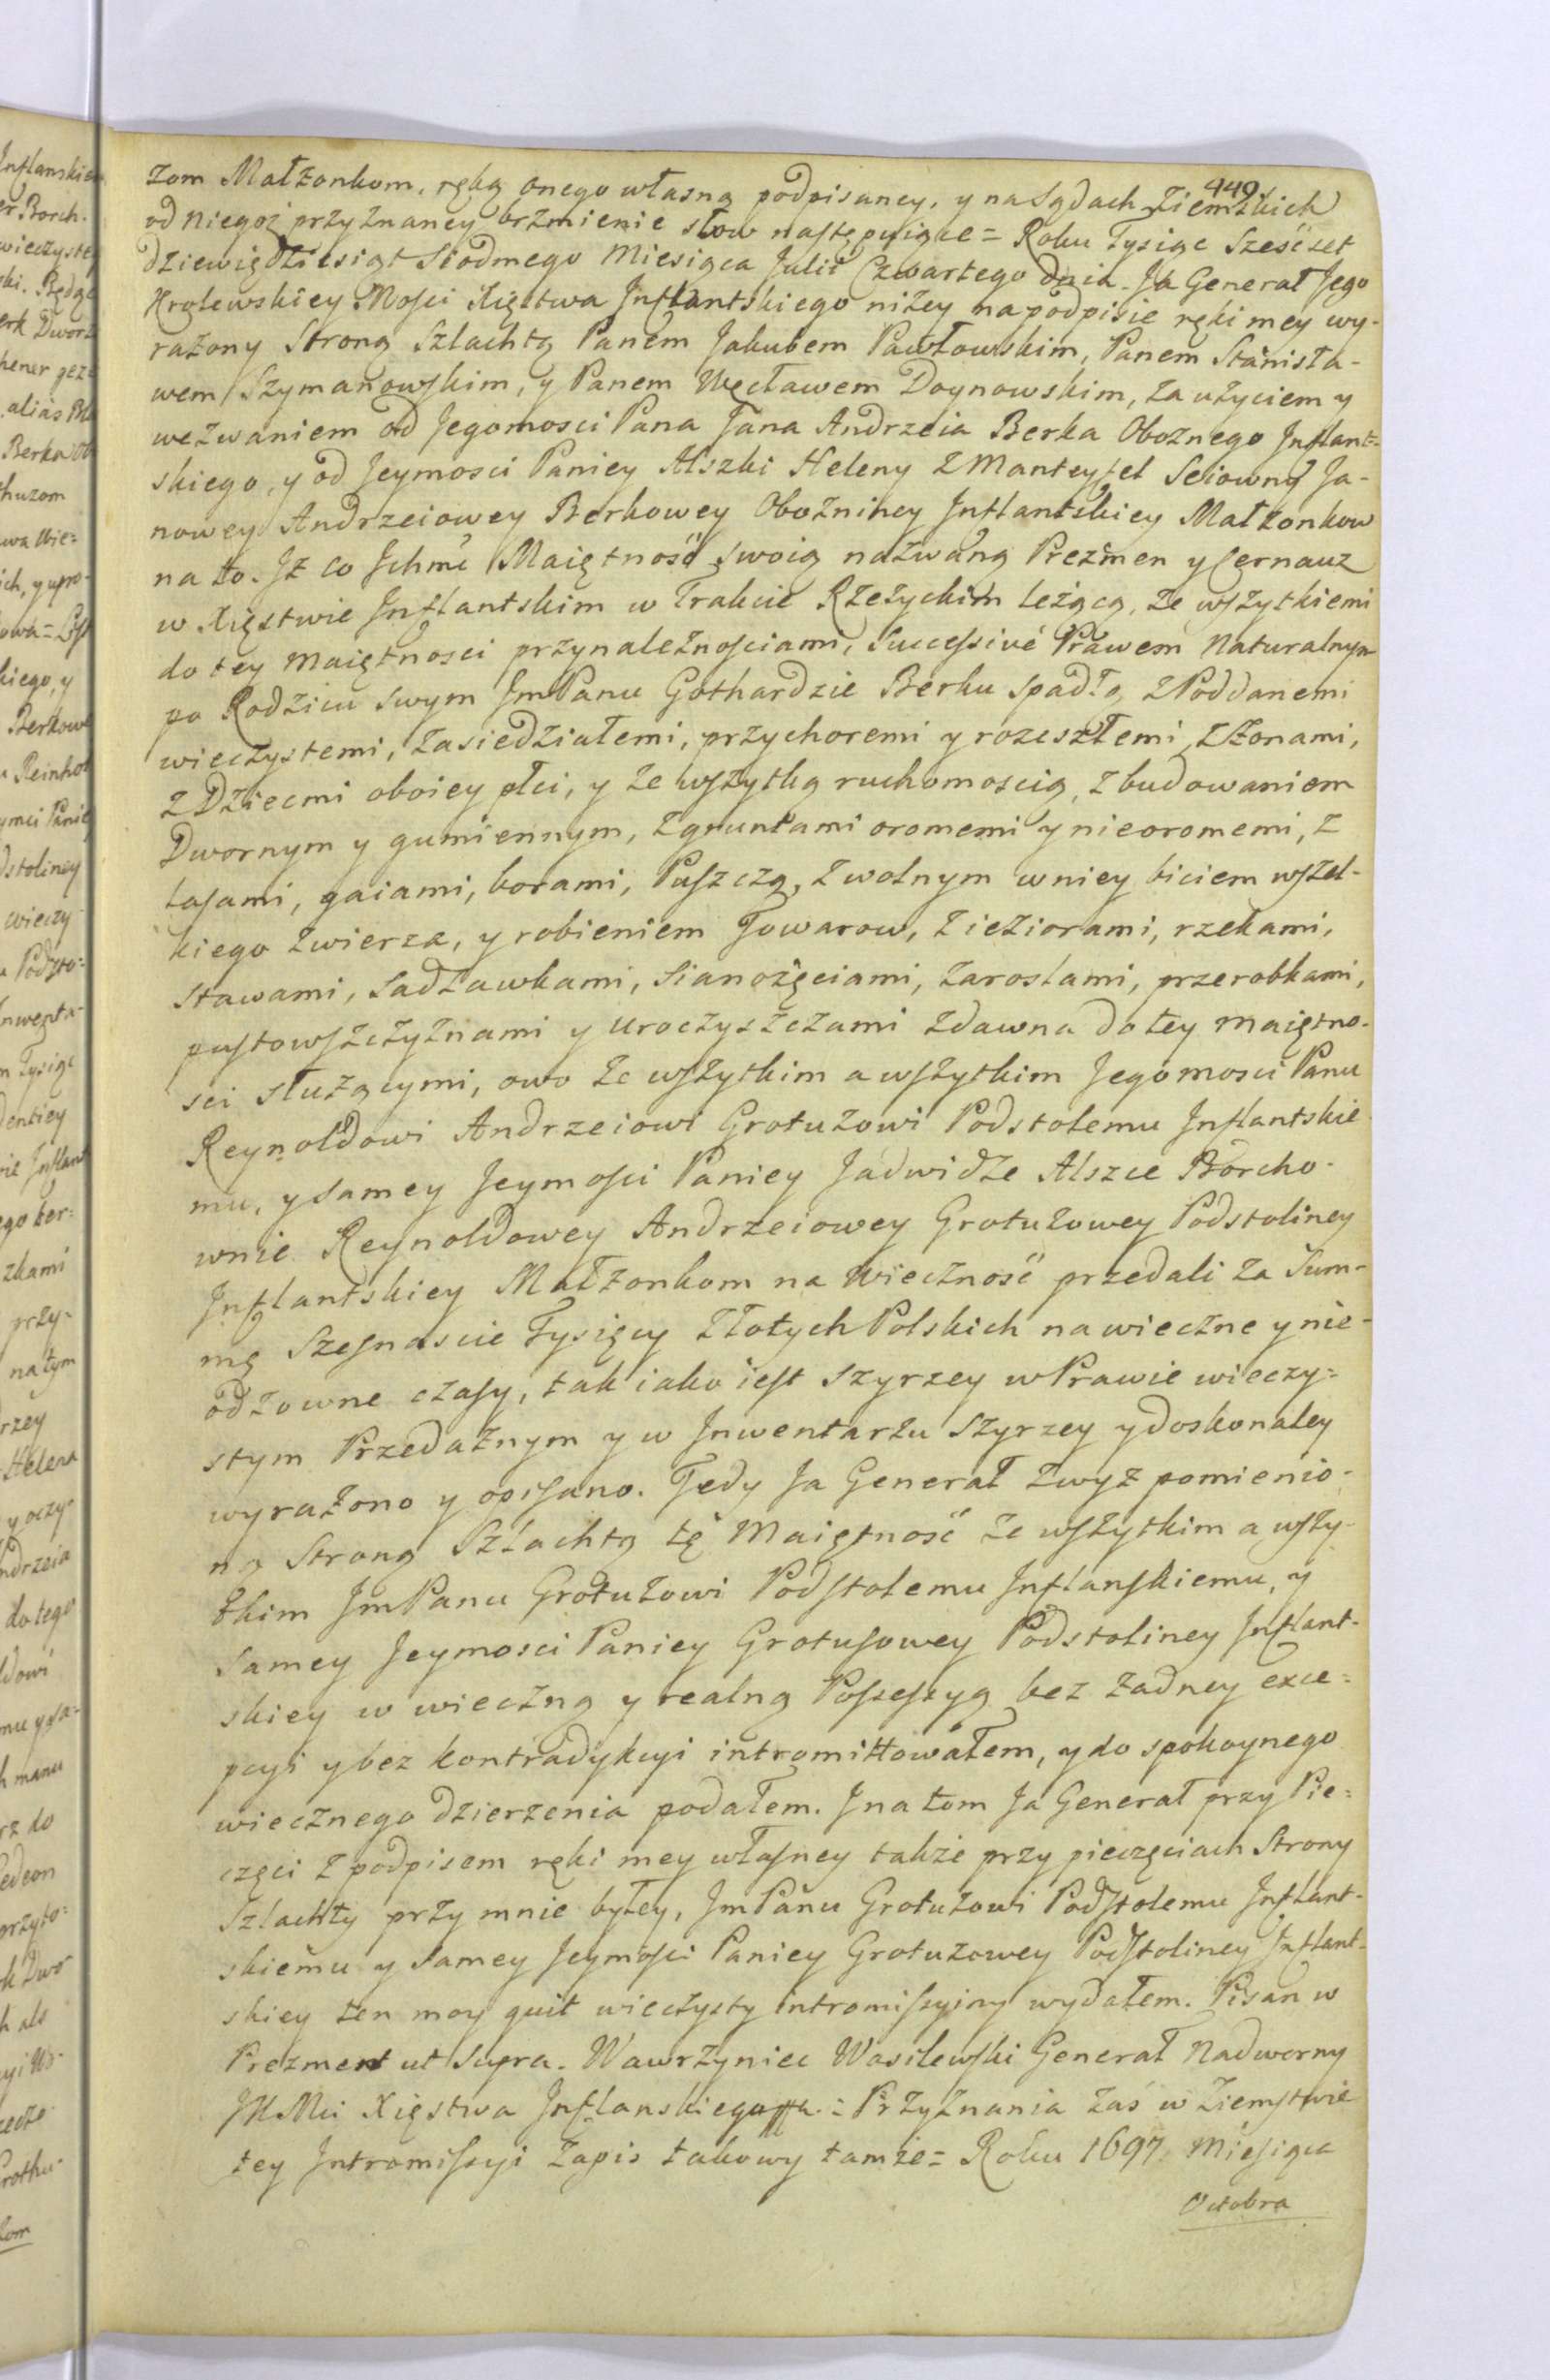 449.
zom Małżonkom, ręką onego własną podpisaney, y na Sądach Ziemskich
od niegoż przyznaney brzmienie słow następuiące = Roku Tysiąc Sześćset
Dziewiędziesiąt Siodmego Miesiąca Julii Czwartego dnia. Ja Generał Jego
Krolewskiey Mości Xięstwa Inflantskiego niżey na podpisie ręki mey wy-
rażony Stroną Szlachtą Panem Jakubem Pawłowskim, Panem Stanisła-
wem Szymanowskim, y Panem Węcławem Doynowskim, za użyciem y
wezwaniem od Jegomosci Pana Jana Andrzeia Berka Oboznego Inflant=
skiego, y od Jeymosci Paniey Alszki Heleny z Manteyfel Seiowny Ja-
nowey Andrzeiowey Berkowey Obozniney Inflantskiey Małżonkow
na to. Iż co Ichmć Maiętność swoią nazwaną Prezmen y Cernauz
w Xięstwie Inflantskim w Trakcie Rzeżyckim leżącą, ze wszytkiemi
do tey maiętnosci przynależnościami, Successivé Prawem Naturalnym
po Rodzicu swym Jm Panu Gothardzie Berku spadłą, z Poddanemi
wieczystemi, zasiedziałemi, przychoremi y rozeszłemi, z Żonami,
z Dziecmi oboiey płci, y ze wszytką ruchomoscią, z budowaniem
Dwornym y gumiennym, z gruntami oromemi y nieoromemi, z
lasami, gaiami, borami, Puszczą, z wolnym w niey biciem wszel-
kiego zwierza, y robieniem Towarow, z ieziorami, rzekami,
stawami, sadzawkami, sianożęciami, zaroslami, przerobkami,
pustowszczyznami y uroczyszczami zdawna do tey maiętno-
sci służącymi, owo ze wszytkim a wszytkim Jegomosci Panu
Reynoldowi Andrzeiowi Grotuzowi Podstolemu Inflantskie-
mu, y samey Jeymosci Paniey Jadwidze Alszce Borcho-
wnie Reynoldowey Andrzeiowey Grotuzowey Podstoliney
Inflantskiey Małżonkom na wieczność przedali za Sum-
mę Szesnascie Tysięcy Złotych Polskich na wieczne y nie-
odzowne czasy, tak iako iest szyrzey w Prawie wieczy=
stym Przedażnym y w Inwentarzu szyrzey y doskonaley
wyrażono y opisano. Tedy Ja Generał zwyż pomienio-
ną Stroną Szlachtą tę Maiętność ze wszytkim a wszy-
tkim Jm Panu Grotuzowi Podstolemu Inflanskiemu, y
samey Jeymosci Paniey Grotusowey Podstoliney Inflant-
skiey w wieczną y realną Possessyą bez żadney exce=
pcyi y bez kontradykcyi intromittowałem, y do spokoynego
wiecznego dzierzenia podałem. I na tom Ja Generał przy Pie=
częci z podpisem ręki mey własney także przy pieczęciach Strony
Szlachty przy mnie byłey, Jm Panu Grotuzowi Podstolemu Inflant-
skiemu y samey Jeymosci Paniey Grotuzowey Podstoliney Inflant-
skiey ten moy quit wieczysty intromissyiny wydałem. Pisan w
Prezment ut supra. Wawrzyniec Wasilewski Generał Nadworny
JKMci Xięstwa Inflanskiego = Przyznania zaś w Ziemstwie
tey Intromissyi zapis takowy tamże = Roku 1697 Miesiąca
Octobra